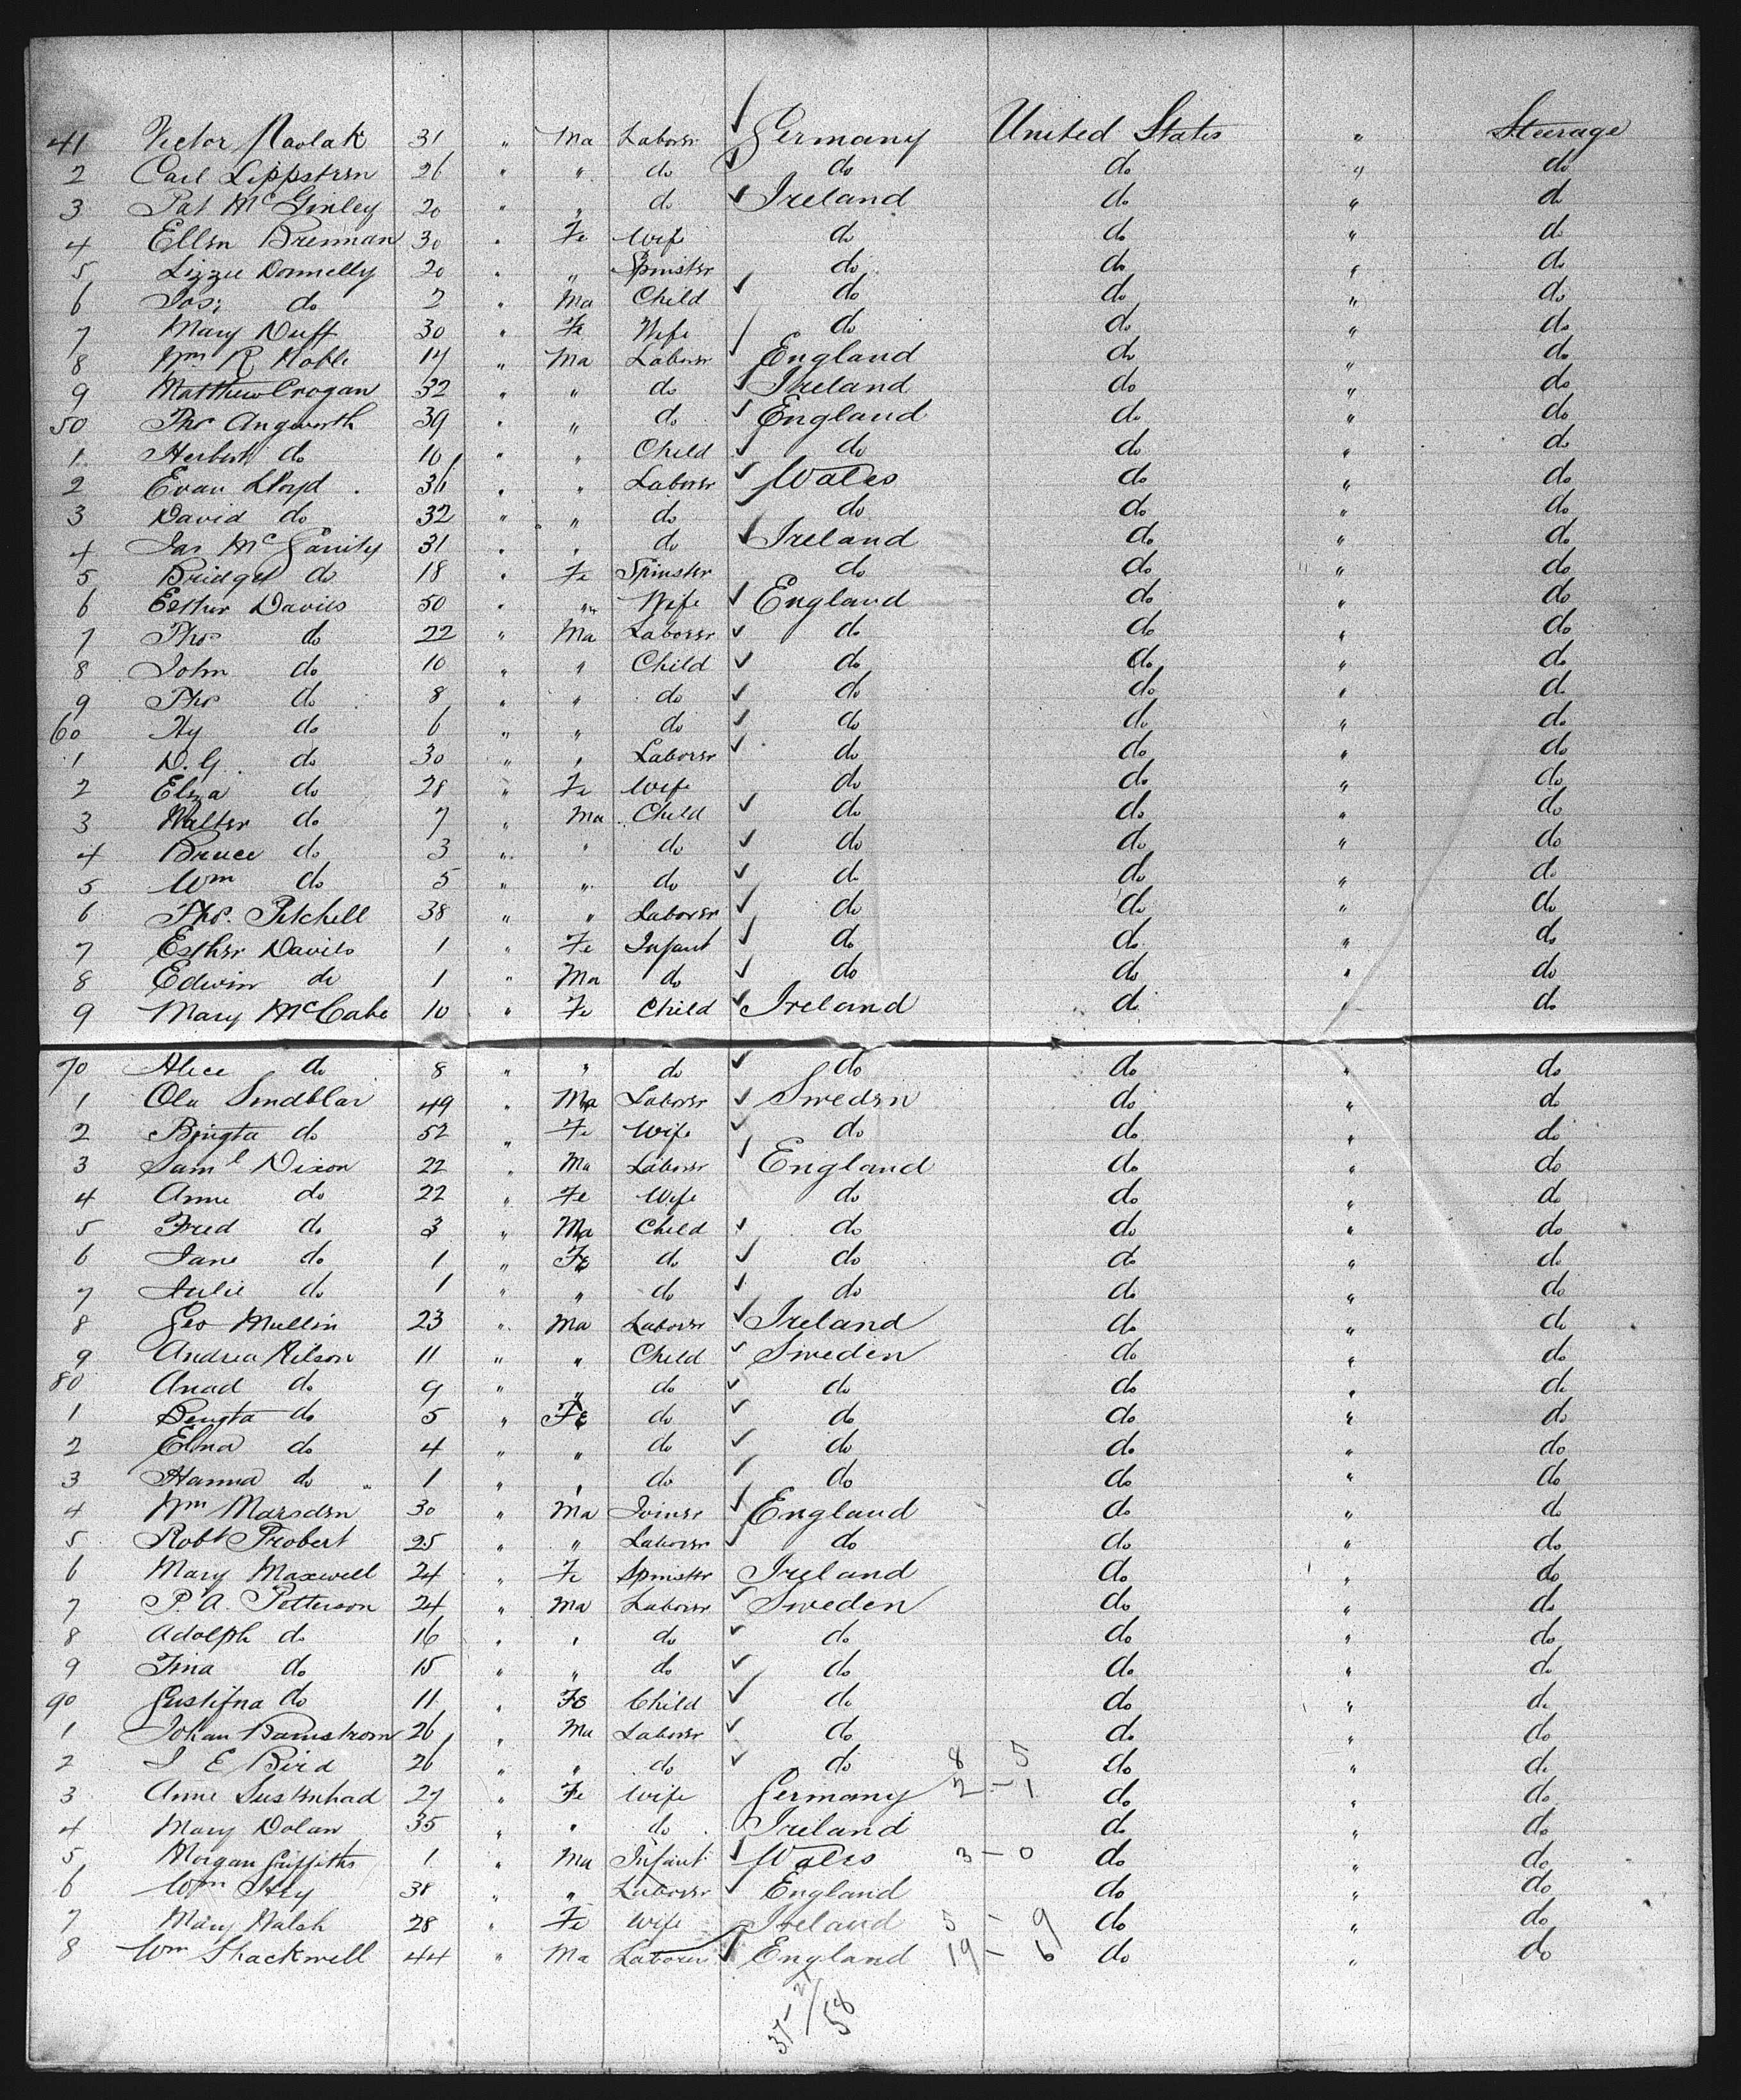 41 Victor Navlak 31 " Ma Laborer Germany United States " Steerage
2 Carl Lippstren 26 " " do do do " do
3 Pat McGinley 20 " " do Ireland do " do
4 Ellen Brennan 30 " Fe Wife do do " do
5 Lizzie Donnelly 20 " " Spinster do do " do
6 Jos; do 2 " Ma Child do do " do
7 Mary Duff 30 " Fe Wife do do " do
8 Wm R Noble 14 " Ma Laborer England do " do
9 Matthew Crogan 32 " " do Ireland do " do
50 Thos Angworth 39 " " do England do " do
1 Herbert do 10 " " Child do do " do
2 Evan Lloyd 36 " " Laborer Wales do " do
3 David do 32 " " do do do " do
4 Jas McGanity 31 " " do Ireland do " do
5 Bridget do 18 " Fe Spinster do do " do
6 Esther Davies 50 " " Wife England do " do
7 Thos do 22 " Ma Laborer do do " do
8 John do 10 " " Child do do " do
9 Thos do 8 " " do do do " do
60 Hy do 6 " " do do do " do
1 D.G. do 30 " " Laborer do do " do
2 Eliza do 28 " Fe Wife do do " do
3 Walter do 7 " Ma Child do do " do
4 Bruce do 3 " " do do do " do
5 Wm do 5 " " do do do " do
6 Thos. Pitchell 38 " " Laborer do do " do
7 Esther Davies 1 " Fe Infant do do " do
8 Edwin do 1 " Ma do do do " do
9 Mary McCabe 10 " Fe Child Ireland do " do
70 Alice do 8 " " do do do " do
1 Ola Sindblar 49 " Ma Laborer Sweden do " do
2 Bingta do 52 " Fe Wife do do " do
3 Saml Dixon 22 " Ma Laborer England do " do
4 Anne do 22 " Fe Wife do do " do
5 Fred do 3 " Ma Child do do " do
6 Jane do 1 " Fe do do do " do
7 Julie do 1 " " do do do " do
8 Geo Mullin 23 " Ma Laborer Ireland do " do
9 Andrea Nilson 11 " " Child Sweden do " do
80 Anad do 9 " " do do do " do
1 Bengta do 5 " Fe do do do " do
2 Elna do 4 " " do do do " do
3 Hanna do 1 " " do do do " do
4 Wm Marsden 30 " Ma Joiner England do " do
5 Robt Probert 25 " " Laborer do do " do
6 Mary Maxwell 24 " Fe Spinster Ireland do " do
7 P.A. Petterson 24 " Ma Laborer Sweden do " do
8 Adolph do 16 " " do do do " do
9 Tina do 15 " " do do do " do
90 Gustifna do 11 " Fe Child do do " do
1 Johan Bamstrom 26 " Ma Laborer do do " do
2 J E Bird 26 " " do do 8 - 5 do " do
3 Anne 27 " Fe Wife Germany 2 - 1 do " do
4 Mary Dolan 35 " " do Ireland do " do
5 Morgan Griffiths 1 " Ma Infant Wales 3 - 0 do " do
6 Wm Hey 38 " " Laborer England do " do
7 Mary Walsh 28 " Fe Wife Ireland 5 - 9 do " do
8 Wm Shackwell 44 " Ma Laborer England 19 - 6 do " do
37 - 21 / 58